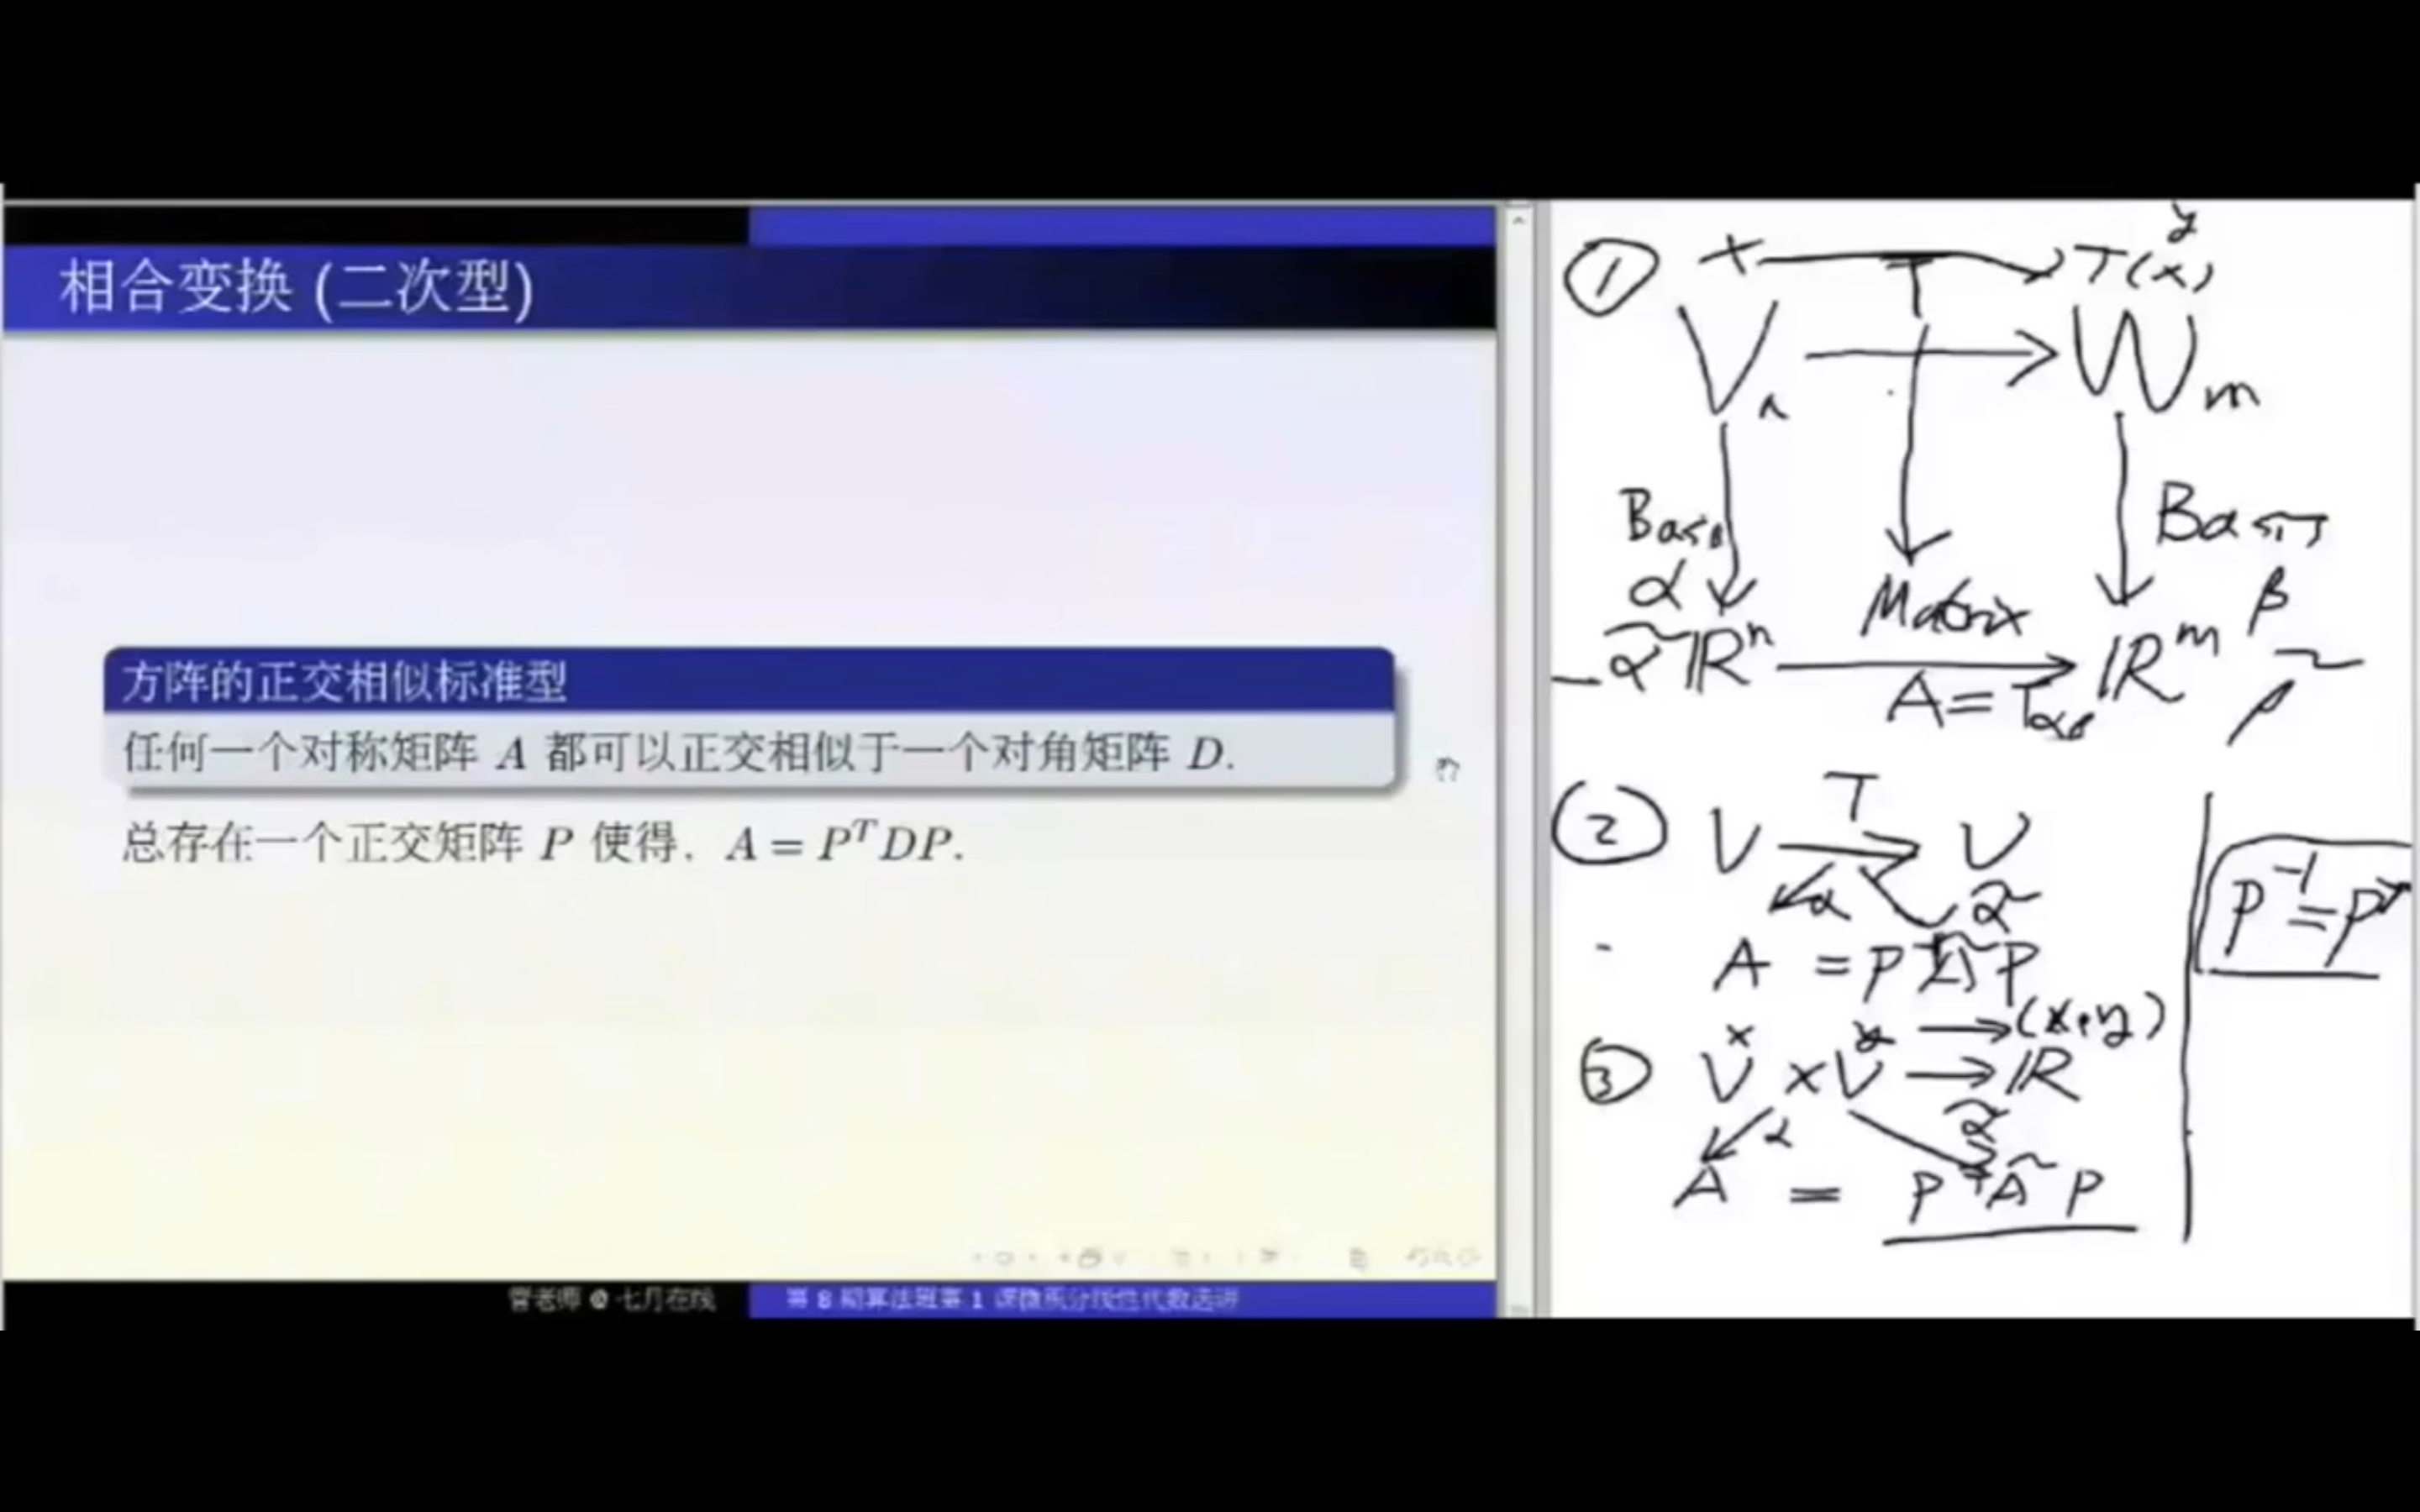 相合变换 (二次型)
方阵的正交相似标准型
任何一个对称矩阵 A 都可以正交相似于一个对角矩阵 D.
总存在一个正交矩阵 P 使得, A = PᵀDP.
管老师 @ 七月在线
第 8 期算法班第 1 课微积分线性代数选讲
y
① x T T(x)
V n W m
Basis Basis
α Matrix β
α̃ ℝⁿ ℝᵐ
A = Tαβ
② V T V
α α̃
A = P Ã P
P⁻¹ = Pᵀ
x y (x,y)
③ V × V ℝ
α α̃
A = Pᵀ Ã P